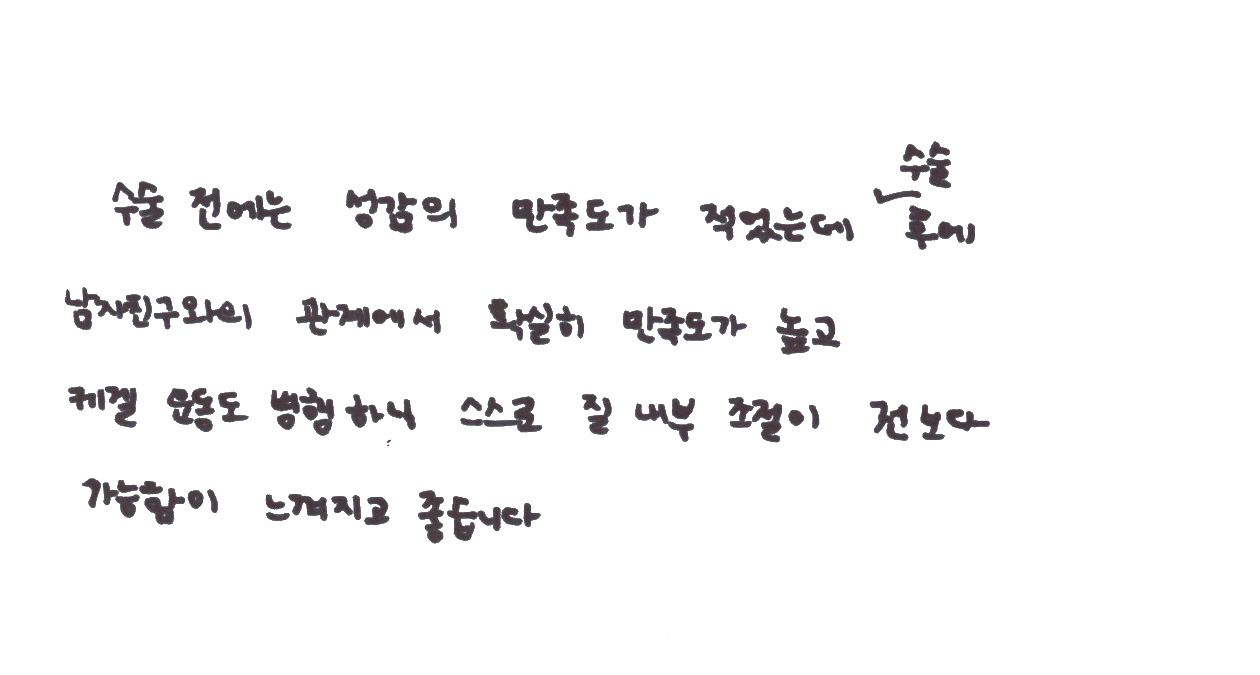 수술 전에는 성감의 만족도가 적었는데 수술 후에
남자친구와의 관계에서 확실히 만족도가 높고
케겔 운동도 병행하니 스스로 질 내부 조절이 전보다
가능함이 느껴지고 좋습니다